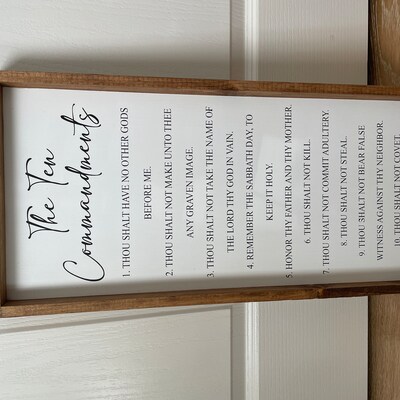 The Ten
Commandments
1. THOU SHALT HAVE NO OTHER GODS
BEFORE ME.
2. THOU SHALT NOT MAKE UNTO THEE
ANY GRAVEN IMAGE.
3. THOU SHALT NOT TAKE THE NAME OF
THE LORD THY GOD IN VAIN.
4. REMEMBER THE SABBATH DAY, TO
KEEP IT HOLY.
5. HONOR THY FATHER AND THY MOTHER.
6. THOU SHALT NOT KILL.
7. THOU SHALT NOT COMMIT ADULTERY.
8. THOU SHALT NOT STEAL.
9. THOU SHALT NOT BEAR FALSE
WITNESS AGAINST THY NEIGHBOR.
10. THOU SHALT NOT COVET.